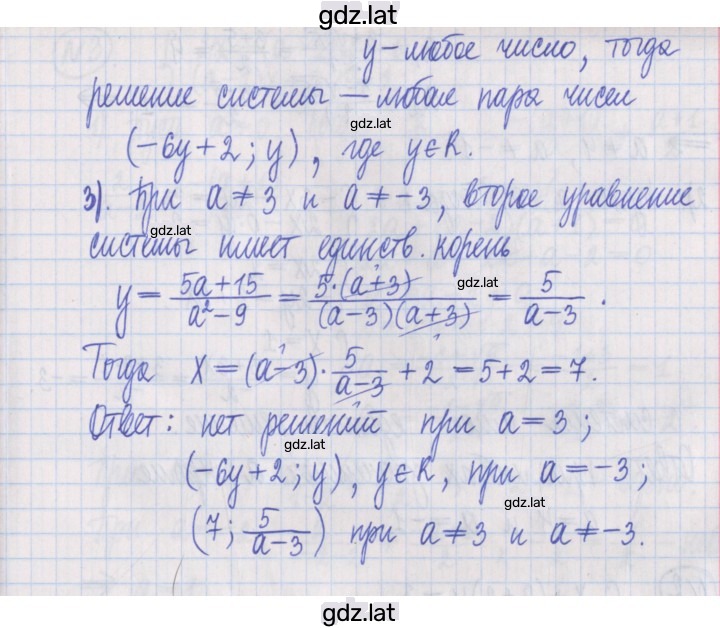 gdz.lat
y – любое число, тогда
решение системы – любая пара чисел
gdz.lat
(-6y+2; y), где y∈R.
3). При a ≠ 3 и a ≠ -3, второе уравнение
gdz.lat
системы имеет единств. корень
y = (5a+15)/(a²-9) = (5·(a+3))/((a-3)(a+3)) = 5/(a-3) .
gdz.lat
Тогда x = (a-3)· 5/(a-3) + 2 = 5+2 = 7.
gdz.lat
Ответ: нет решений при a = 3;
gdz.lat
(-6y+2; y), y∈R, при a = -3;
gdz.lat
(7; 5/(a-3)) при a ≠ 3 и a ≠ -3.
gdz.lat